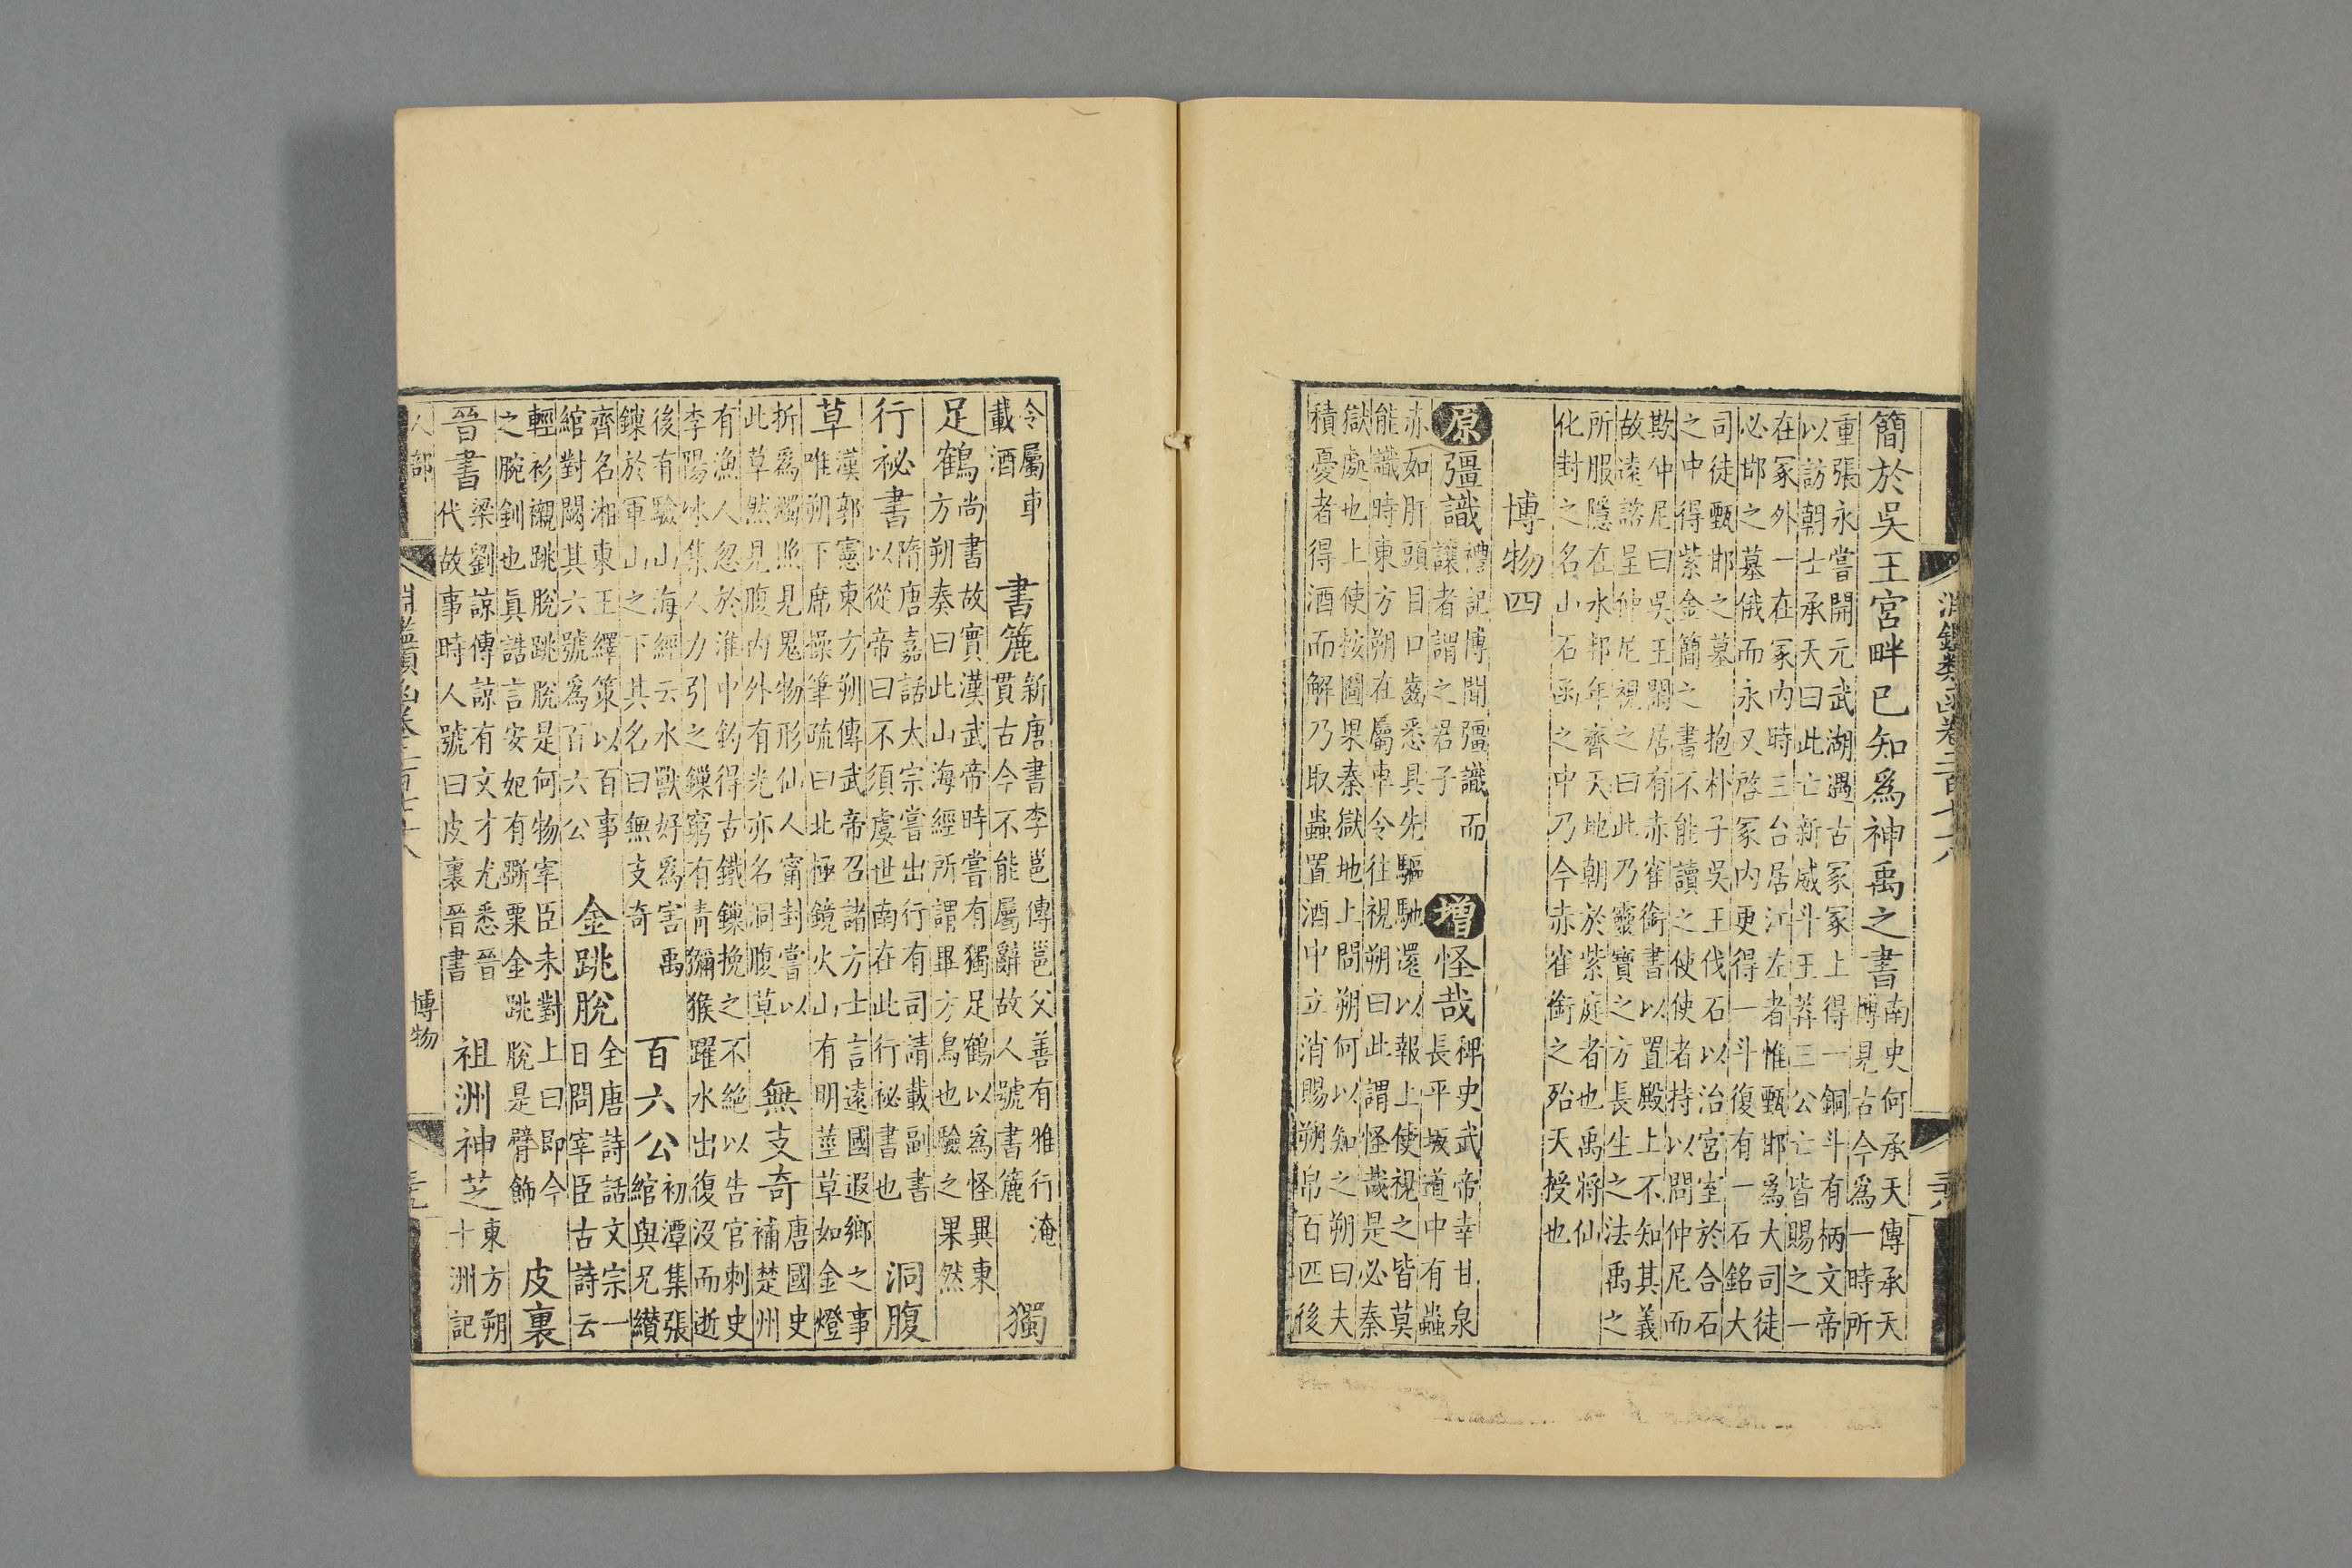 淵鑑類函卷三百
簡於吳王宮畔已知爲神禹之書
南史何承天傳承天
博見古今爲一時所
重張永嘗開元武湖遇古冢冢上得一銅斗有柄文帝
以訪朝士承天曰此亡新威斗王莽三公亡皆賜之一
在冢外一在冢内時三台居江左者惟甄邯爲大司徒
必邯之墓俄而永又啓冢内更得一斗復有一石銘大
司徒甄邯之墓 抱朴子吳王伐石以治宮室於合石
之中得紫金簡之書不能讀之使使者持以問仲尼而
欺仲尼曰吳王閒居有赤雀銜書以置殿上不知其義
故遠諮呈仲尼視之曰此乃靈寶之方長生之法禹之
所服隱在水邦年齊天地朝於紫庭者也禹將仙
化封之名山石函之中乃今赤雀銜之殆天授也
博物四
原彊識
禮記博聞彊識而
讓者謂之君子
增怪哉
稗史武帝幸甘泉
長平坂道中有蟲
赤如肝頭目口齒悉具先驅馳還以報上使視之皆莫
能識時東方朔在屬車令往視朔曰此謂怪哉是必秦
獄處也上使按圖果秦獄地上問朔何以知之朔曰夫
積憂者得酒而解乃取蟲置酒中立消賜朔帛百匹後
令屬車
載酒
書簏
新唐書李邕傳邕父善有雅行淹
貫古今不能屬辭故人號書簏
獨
足鶴
尚書故實漢武帝時嘗有獨足鶴以爲怪異東
方朔奏曰此山海經所謂畢方鳥也驗之果然
行祕書
隋唐嘉話太宗嘗出行有司請載副書
以從帝曰不須虞世南在此行祕書也
洞腹
草
漢郭憲東方朔傳武帝召諸方士言遠國遐鄉之事
唯朔下席操筆疏曰北極鏡火山有明莖草如金燈
折爲燭照見鬼物形仙人甯封嘗以
此草然見腹内外有光亦名洞腹草
無支奇
唐國史
補楚州
有漁人忽於淮中釣得古鐵鏁挽之不絶以告官刺史
李陽冰集人力引之鏁窮有青獼猴躍水出復沒而逝
後有驗山海經云水獸好爲害禹
鏁於軍山之下其名曰無支奇
百六公
初潭集張
綰與兄纘
齊名湘東王繹策以百事
綰對闕其六號爲百六公
金跳脫
全唐詩話文宗一
日問宰臣古詩云
輕衫襯跳脫跳脫是何物宰臣未對上曰即今
之腕釧也眞誥言安妃有斲粟金跳脫是臂飾
皮裏
晉書
梁劉諒傳諒有文才尤悉晉
代故事時人號曰皮裏晉書
祖洲神芝
東方朔
十洲記
人部
博物